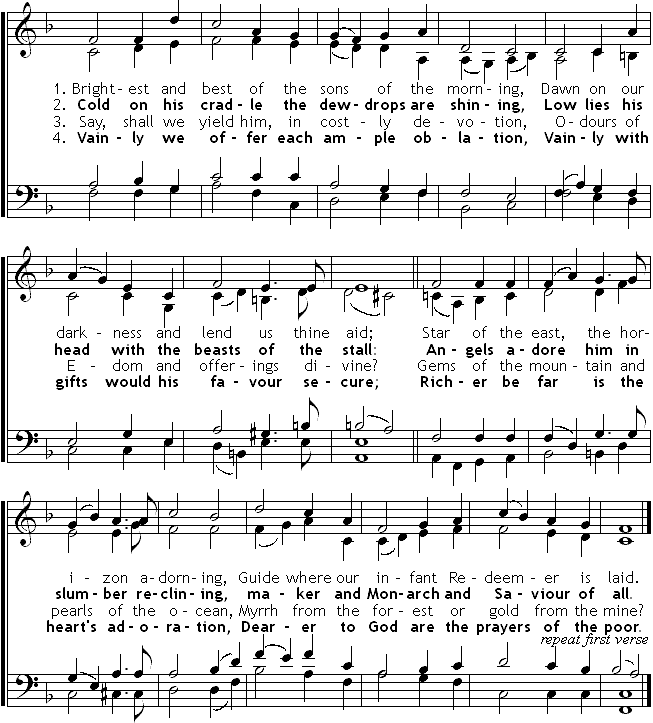 1. Bright-est and best of the sons of the morn-ing, Dawn on our
2. Cold on his crad-le the dew-drops are shin-ing, Low lies his
3. Say, shall we yield him, in cost-ly de-vo-tion, O-dours of
4. Vain-ly we of-fer each am-ple ob-la-tion, Vain-ly with
dark-ness and lend us thine aid; Star of the east, the hor-
head with the beasts of the stall: An-gels a-dore him in
E-dom and offer-ings di-vine? Gems of the moun-tain and
gifts would his fa-vour se-cure; Rich-er be far is the
i-zon a-dorn-ing, Guide where our in-fant Re-deem-er is laid.
slum-ber re-clin-ing, ma-ker and Mon-arch and Sa-viour of all.
pearls of the o-cean, Myrrh from the for-est or gold from the mine?
heart's ad-o-ra-tion, Dear-er to God are the prayers of the poor.
repeat first verse